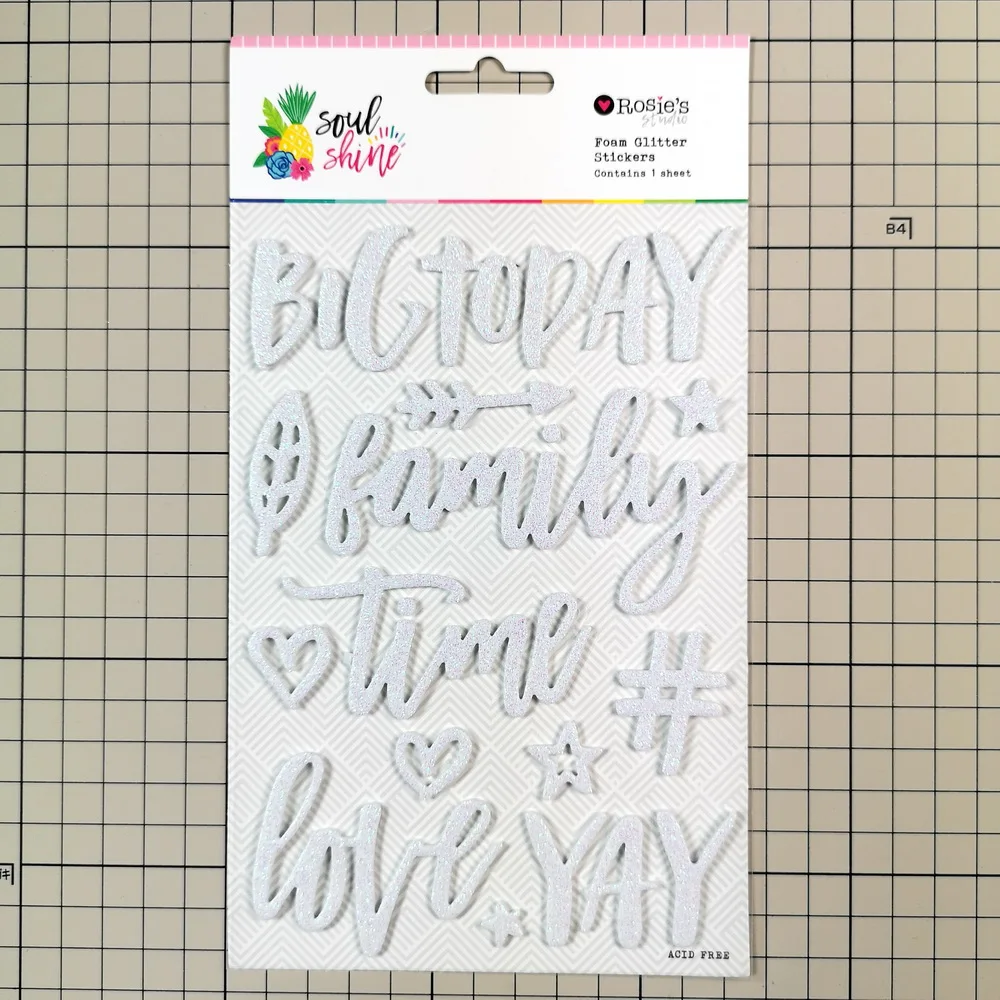 soul
shine
Rosie's
studio
Foam Glitter
Stickers
Contains 1 sheet
B4
BiG TODAY
family
time
#
love
YAY
ACID FREE